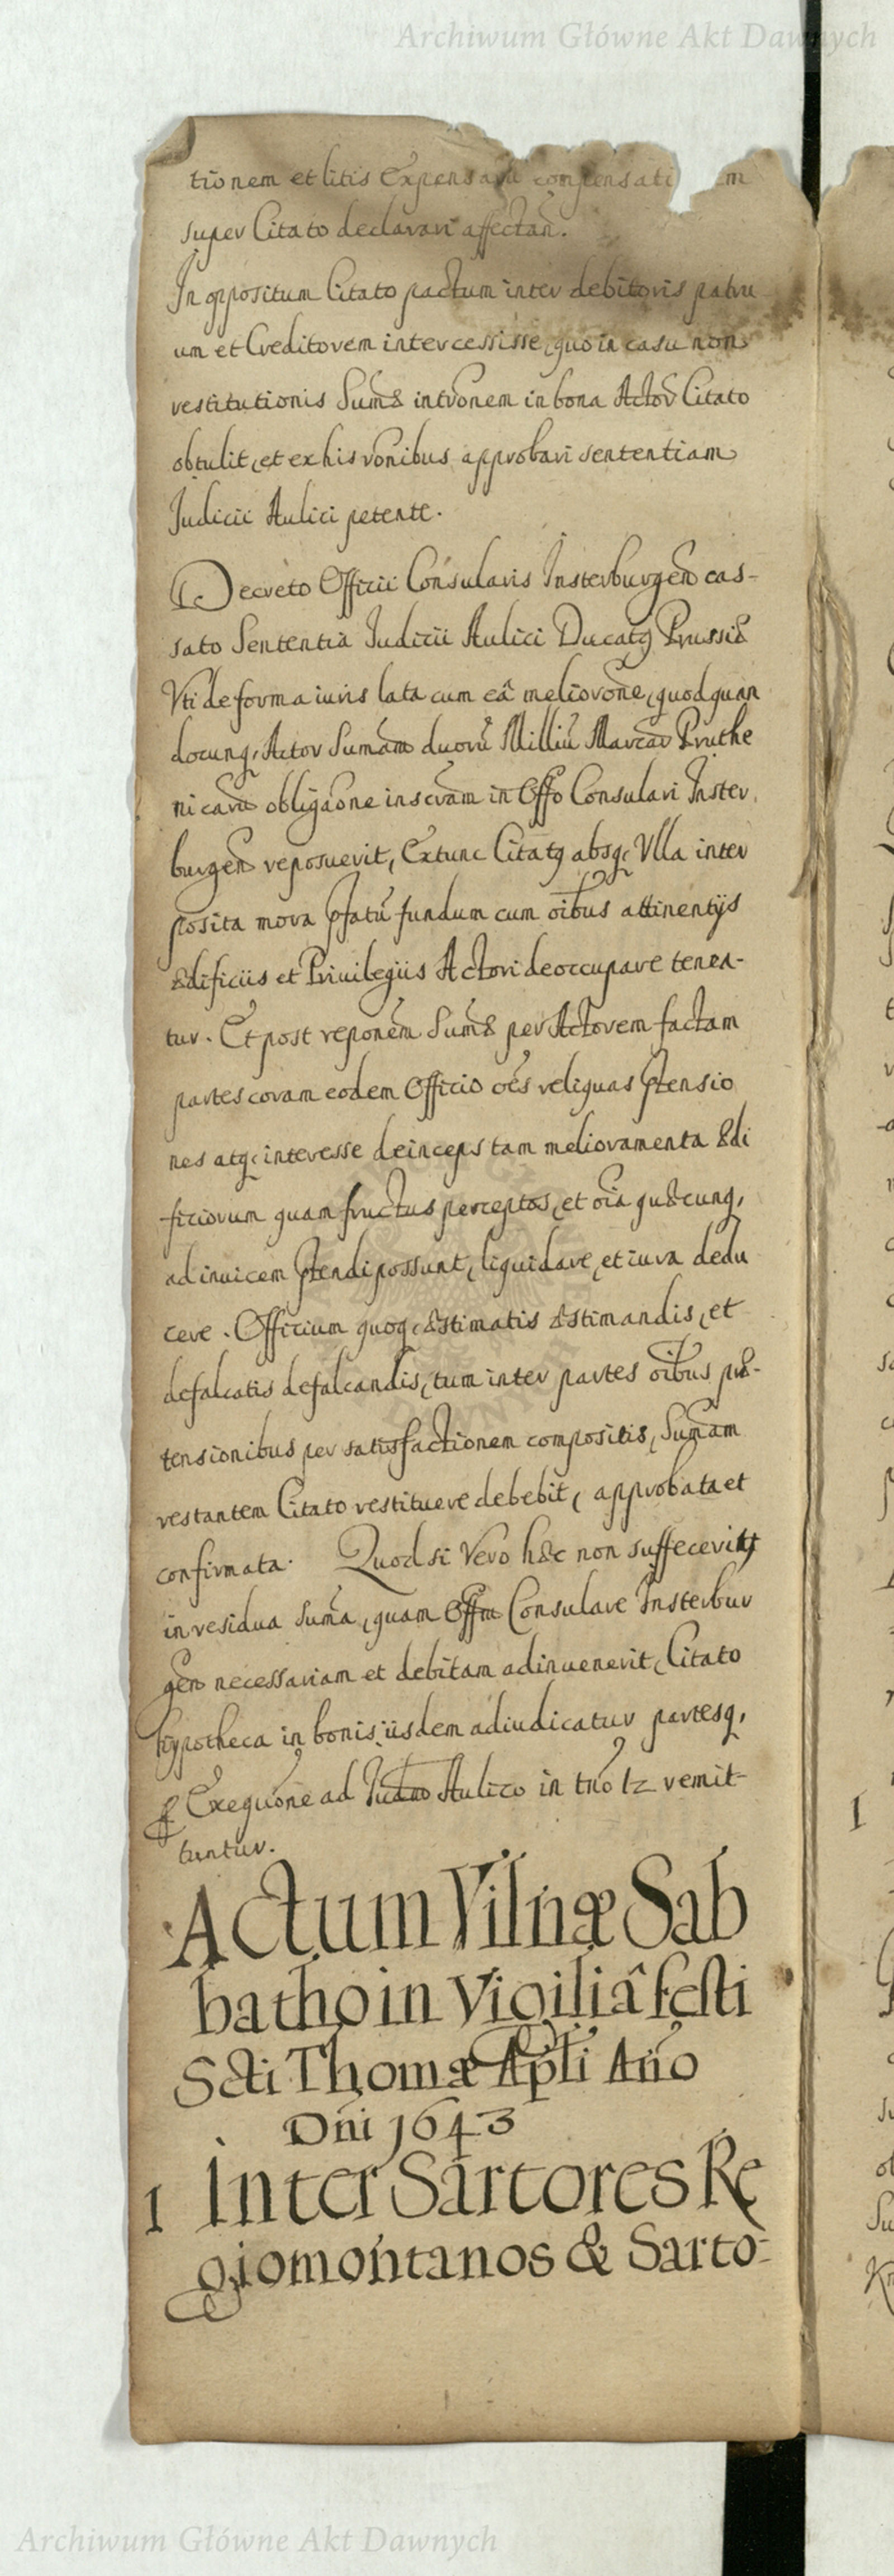 Archiwum Główne Akt Dawnych
tionem et litis Expensarū compensati m
super Citato declarari affectan̄.
In oppositum Citato pactum inter debitoris patru
um et Creditorem intercessisse, quo in casu non
restitutionis Sum̄æ intr̄onem in bona Actor̄ Citato
obtulit, et ex his rōnibus approbari sententiam
Judicii Aulici petente.
Decreto Officii Consularis Insterburgen̄ cas-
sato Sententia Judicii Aulici Ducatq Prussiæ
Vti de forma iuris lata cum eâ meliorōne, quod quan
docunq, Actor Sum̄am duorū Milliū Marcar̄ Pruthe
nicarū obligāone inscr̄am in Offo Consulari Inster
burgen̄ reposuerit, Extunc Citatq absq, Vlla inter
posita mora pfatū fundum cum oībus attinentijs
ædificiis et Privilegiis Actori deoccupare tenea-
tur. Et post reponēm Sum̄æ per Actorem factam
partes coram eodem Officio oēs reliquas ptensio
nes atq, interesse deinceps tam melioramenta ædi
ficiorum quam fructus perceptos, et oīa quæcunq,
ad inuicem ptendi possunt, liquidare, et iura dedu
cere. Officium quoq, æstimatis æstimandis, et
defalcatis defalcandis, tum inter partes oībus præ-
tensionibus per satisfactionem compositis, Sum̄am
restantem Citato restituere debebit, approbata et
confirmata. Quod si Vero hæc non suffecerint
in residua Sum̄a, quam Offm Consulare Insterbur
gen̄ necessariam et debitam adinuenerit, Citato
hypotheca in bonis iisdem adiudicatur partesq,
p Exequōne ad Iudm̄ Aulico in tn̄o tz remit-
tuntur.
Actum Vilnæ Sab
batho in Vigiliâ festi
Scti Thomæ Apli An̄o
Dni 1643
1 Inter Sartores Re
giomontanos & Sarto-
1
Archiwum Główne Akt Dawnych